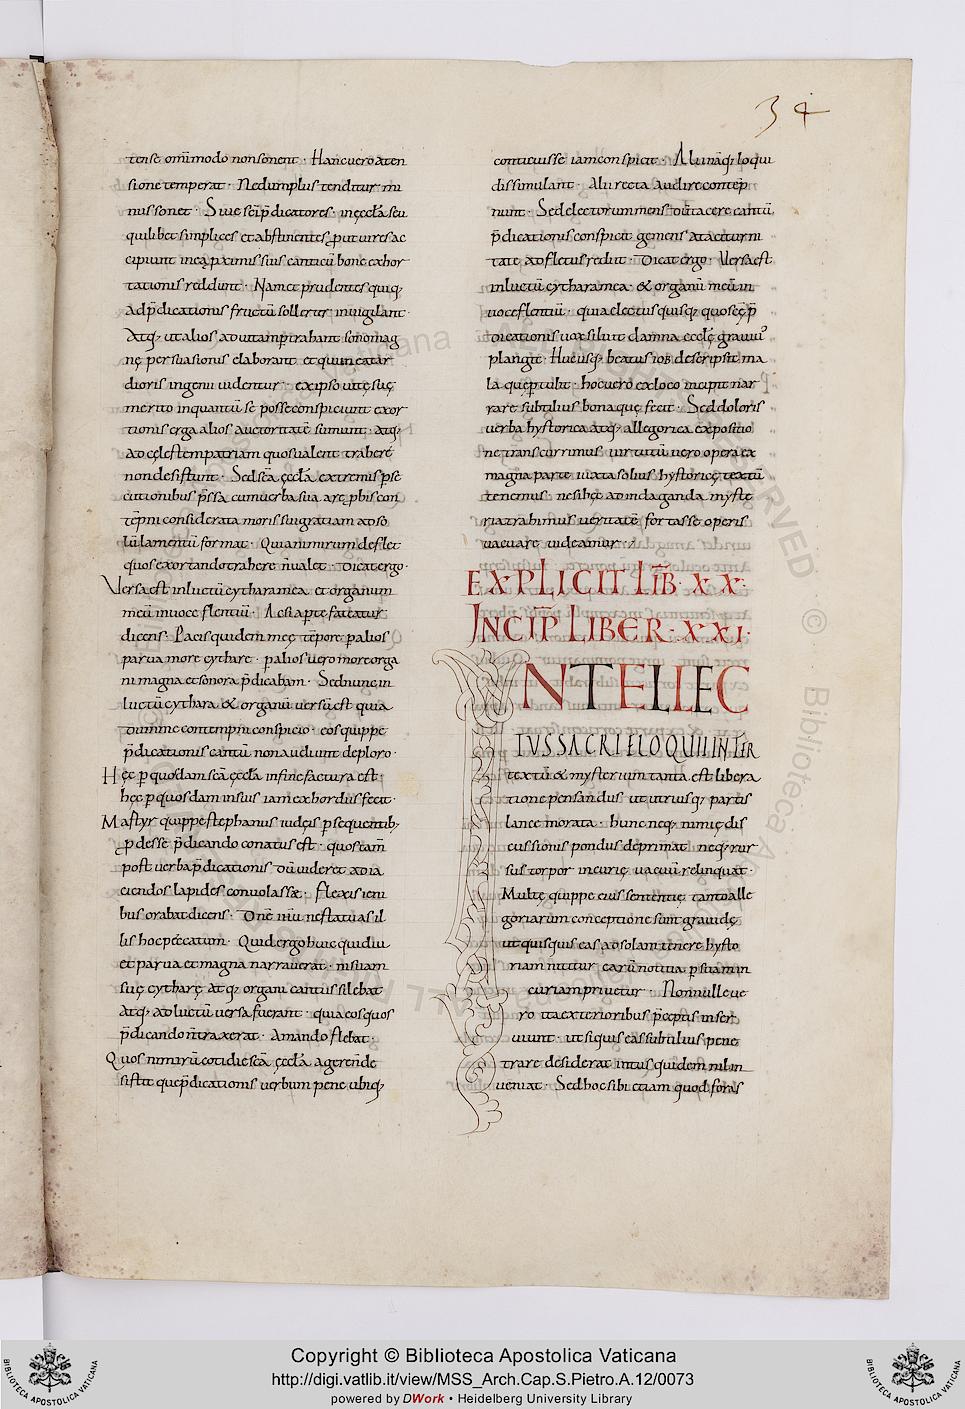 34
tense om̄imodo nonsonent · Hanc uero aten
sione temperat · Nedum plus tenditur mi
nus sonet · Siue sc̄i p̄dicatores · in ęccl̄a seu
quilibet simplices et abstinentes prout uires ac
cipiunt in ea p̱ximis suis canticū bonę exhor
tationis reddunt · Namet prudentes quiq;
ad p̄dicationis fructū sollerter inuigilant ·
Atq; ut alios ad uitam p̱trahant sono mag
nę persuasionis elaborant et quum ea tar
dioris ingenii uidentur · ex ipso uitę suę
merito inquantū se posse conspiciunt exor
tionis erga alios auctoritatē sumunt · atq;
ad cęlestem patriam quos ualent trahere
non desistunt · Sed sc̄a ęccl̄a extremis p̱se
cutionibus p̄ssa cum uerba sua a rep̱bis con
tēpni considerata moris sui gratiam ad so
lū lamentū format · Quia nimirum deflet
quos exortando trahere n̄ ualet · Dicat ergo ·
Versa est in luctū cythara mea · et organum
meū in uoce flentiū · Ac si aperte fateatur
dicens · Pacis quidem meę tēpore p̱ alios
parua more cytharę · p̱ alios uero more orga
ni magna et sonora p̄dicabam · Sed nunc in
luctū cythara & organū uersū est quia
dum me contempni conspicio · eos quippe
p̄dicationis cantū non audiunt deploro ·
Hęc p̱ quosdam sc̄a ęccl̄a in fine factura est ·
hęc p̱ quosdam in suis iam exhordiis fecit ·
Martyr quippe stephanus iudęis p̱sequentib;
p̱desse p̄dicando conatus est · quos tam̄
post uerba p̄dicationis dū uideret ad ia
ciendos lapides conuolasse · Flexis geni
bus orabat dicens · Dn̄e ih̄u ne statuas il
lis hoc peccatum · Quid ergo huic qui diu
et parua et magna narrauerat · nisi iam
suę cytharę atq; organi cantus silebat
atq; ad luctū uersa fuerant · quia eos quos
p̄dicando n̄ traxerat · Amando flebat ·
Quos nimirū cotidie sc̄a ęccl̄a agere n̄ de
sistit que p̄dicationis uerbum pene ubiq;
conticuisse iam conspicit · Alii nāq; loqui
dissimulant · Alii recta audire contēp
nunt · Sed electorum mens dū tacere cantū
p̄dicationis conspicit gemens ac taciturni
tate ad fletus rediit · Dicat ergo · Versa est
in luctū cythara mea & organū meū in
uoce flentiū · quia electus quisq; quo sc̄ę p̄
dicationis uox siluit damna ecclę grauiꝰ
plangit · Hucusq; beatus iob descripsit ma
la quę p̱tulit · hoc uero ex loco incipit nar
rare subtilius bona quę fecit · Sed doloris
uerba hystorica atq; allegorica expositio
ne transcurrimus uirtutū uero opera ex
magna parte iuxta solius hystorię textū
tenemus · ne si hęc ad indaganda myste
ria trahimus ueritatē fortasse operis
uacuare uideamur :
EXPLICIT LIB̄ · XX ·
INCIP̄ LIBER · XXI ·
INTELLEC
TUS SACRI ELOQUII INTER
textū & mysterium tanta est libera
tione pensandus ut utriusq; partis
lance morata · hunc neq; nimię dis
cussionis pondus deprimat neq; rur
sus torpor incurię uacuū relinquat ·
Multę quippe eius sententię tanto alle
goriarum conceptione sunt grauidę
ut quisquis eas ad solam tenere hysto
riam nititur earū notitia p̱ suam in
curiam priuetur · Nonnullę ue
ro ita exterioribus p̄ceptis inser
uiunt · ut si quis eas subtilius pene
trare desiderat intus quidem nil in
ueniat · Sed hoc sibi etiam quod foras
Copyright © Biblioteca Apostolica Vaticana
http://digi.vatlib.it/view/MSS_Arch.Cap.S.Pietro.A.12/0073
powered by DWork • Heidelberg University Library